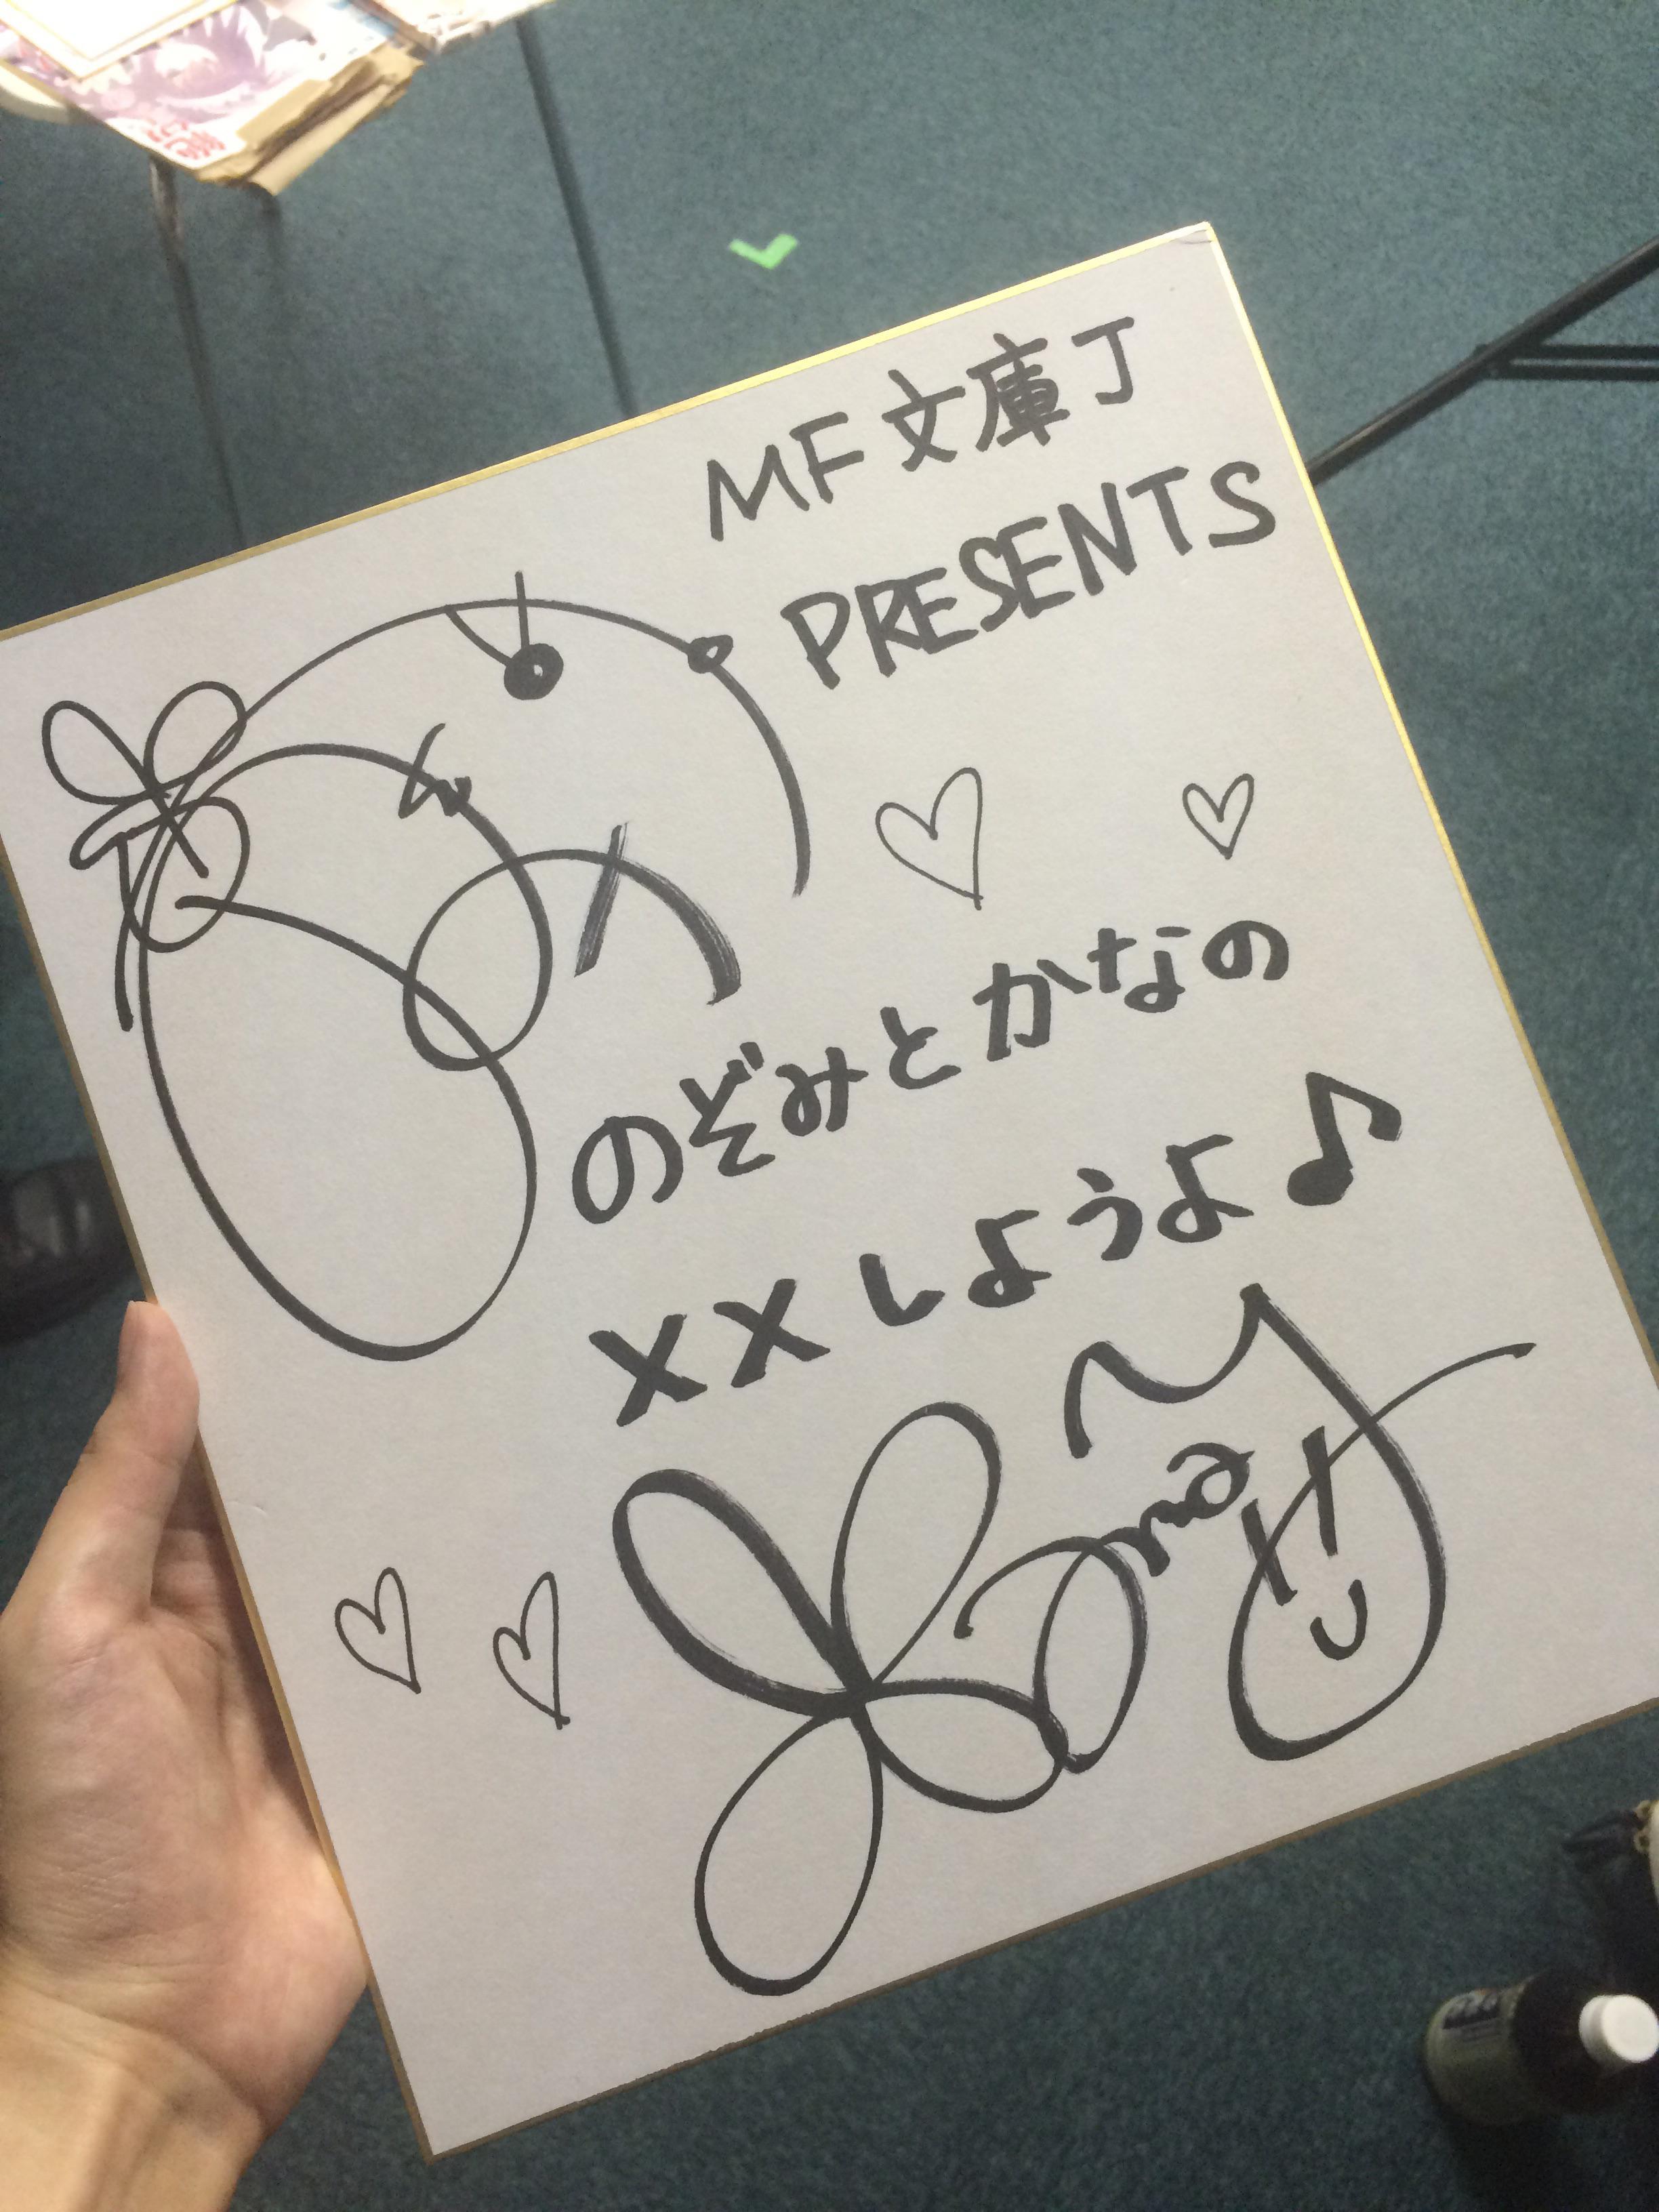 MF文庫J
PRESENTS
のぞみとかなの
××しようよ♪